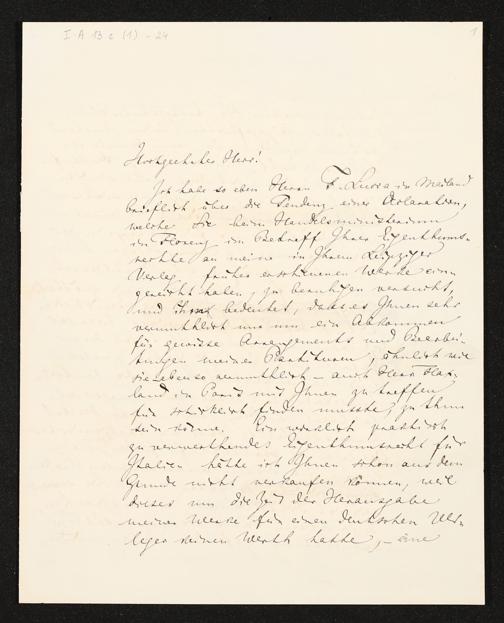 I A 13 c (1) - 24
1
Hochgeehrter Herr!
Ich habe so eben Herrn F. Lucca in Mailand
brieflich über die Tendenz einer Declaration,
welche Sie beim Handelsministerium
in Florenz im Betreff Ihrer Eigenthums-
rechte an meine in Ihrem Leipziger
Verlag früher erschienenen Werke ein-
gereicht haben, zu beruhigen versucht,
und ihm bedeutet, dass es Ihnen sehr
vermuthlich nur um ein Abkommen
für gewisse Arrangements und Bearbei-
tungen meiner Partituren, ähnlich wie
sie ebenso vermuthlich – auch Herr Flax-
land in Paris mit Ihnen zu treffen
für schicklich finden musste, zu thun
sein könne. Ein wirklich praktisch
zu verwerthendes Eigenthumsrecht für
Italien hätte ich Ihnen schon aus dem
Grunde nicht verkaufen können, weil
dieses um die Zeit der Herausgabe
meiner Werke für einen deutschen Ver-
leger keinen Werth hatte, – eine